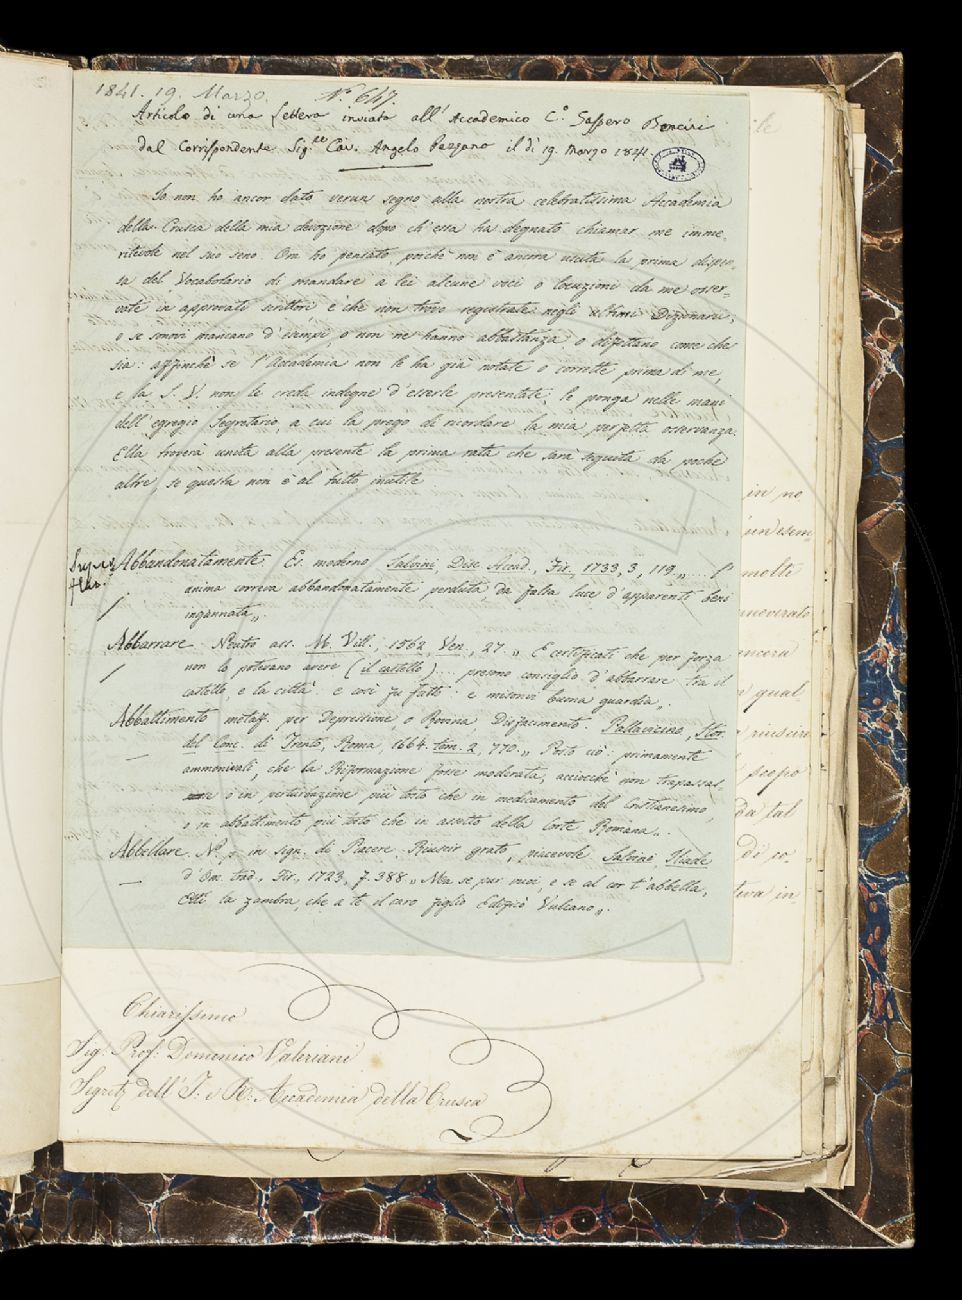 1841. 19. Marzo. N.° 647.
Articolo di una lettera inviata all'Accademico C.° Gaspero Bencini
dal Corrispondente Sig.re Cav. Angelo Pezzano il dì 19. Marzo 1841.
Io non ho ancor dato verun segno alla nostra celebratissima Accademia
della Crusca della mia devozione dopo ch'essa ha degnato chiamar me imme-
ritevole nel suo seno. Om ho pensato poichè non è ancora uscita la prima dispen-
sa del Vocabolario di mandare a lei alcune voci o locuzioni da me osser-
vate in approvati scrittori e che non trovo registrate negli ultimi Dizionarii,
o se sonovi mancano d'esempi, o non ne hanno abbastanza o difettano come che
sia: affinchè se l'Accademia non le ha già notate o corrette prima di me,
e la S. V. non le creda indegne d'esserle presentate, le ponga nelle mani
dell'egregio Segretario, a cui la prego di ricordare la mia perfetta osservanza.
Ella troverà unita alla presente la prima nota che sarà seguita da poche
altre, se questa non è al tutto inutile
Abbandonatamente. Es. moderno Salvini, Disc. Acad., Fir., 1733, 3, 119 „ .... l'
anima correva abbandonatamente perduta da falsa luce d'apparenti beni
ingannata „.
Abbarrare. Neutro ass. M. Vill., 1562, Ven., 27. „ E certificati che per forza
non lo potevano avere (il castello) .... presono consiglio d'abbarrare tra il
castello, e la città: e così fu fatto: e misonvi buona guardia „.
Abbattimento metaf. per Depressione o Rovina Disfacimento. Pallavicino, Stor.
del Conc. di Trento, Roma, 1664. tom. 2, 770. „ Posto ciò: primamente
ammonivali, che la Riformazione fosse moderata, acciochè non trapassas-
se o in perturbazione più tosto che in medicamento del Cristianesimo,
o in abbattimento più tosto che in assetto della Corte Romana „.
Abbellare. N. p. in sign. di Piacere. Riuscir grato, piacevole Salvini Iliade
d'Om. trad., Fir., 1723, f. 388. „ Ma se pur vuoi, e se al cor t'abbella,
Ecci la zambra, che a te il caro figlio Edificò Vulcano „.
Chiarissimo
Sig.r Prof. Domenico Valeriani
Segret.o dell'I. e R. Accademia della Crusca